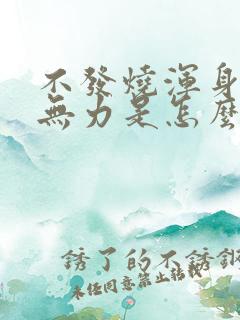 不發燒渾身
無力是怎麼
銹了的不銹鋼
未經同意禁止轉載